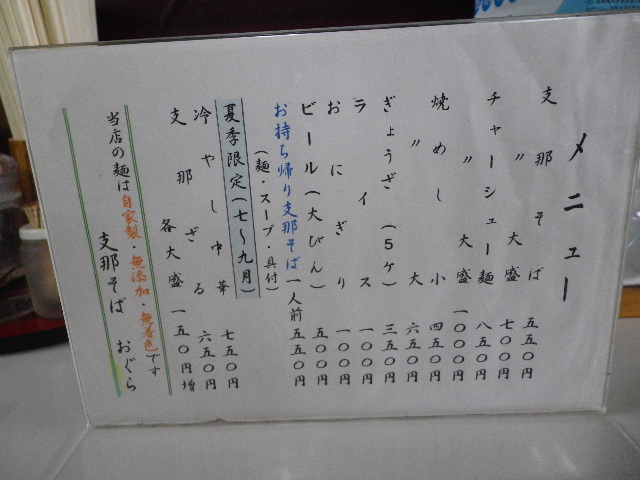 メニュー
支那そば 五五〇円
〃 大盛 七〇〇円
チャーシュー麺 八五〇円
〃 大盛 一〇〇〇円
焼めし 小 四五〇円
〃 大 六五〇円
ぎょうざ (5ケ) 三五〇円
ライス 一〇〇円
おにぎり 一〇〇円
ビール(大びん) 五〇〇円
お持ち帰り支那そば 一人前 五五〇円
(麺・スープ・具付)
夏季限定(七〜九月)
冷やし中華 七五〇円
支那ざる 六五〇円
各大盛 一五〇円増
当店の麺は自家製・無添加・無着色です
支那そば おぐら